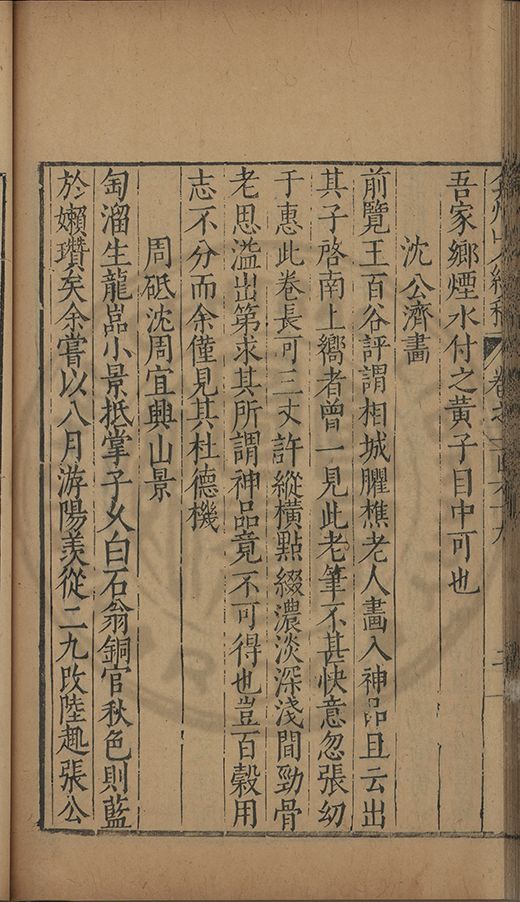 弇州山人續稿 卷之一百六十九
吾家鄉煙水付之黃子目中可也
沈公濟畫
前覽王百谷評謂相城臞樵老人畫入神品且云出
其子啓南上嚮者曾一見此老筆不甚快意忽張幼
于惠此卷長可三丈許縱橫點綴濃淡深淺間勁骨
老思溢出第求其所謂神品竟不可得也豈百穀用
志不分而余僅見其杜德機
周砥沈周宜興山景
匋溜生龍嵓小景抵掌子久白石翁銅官秋色則藍
於嬾瓚矣余嘗以八月游陽羨從二九改陸趣張公